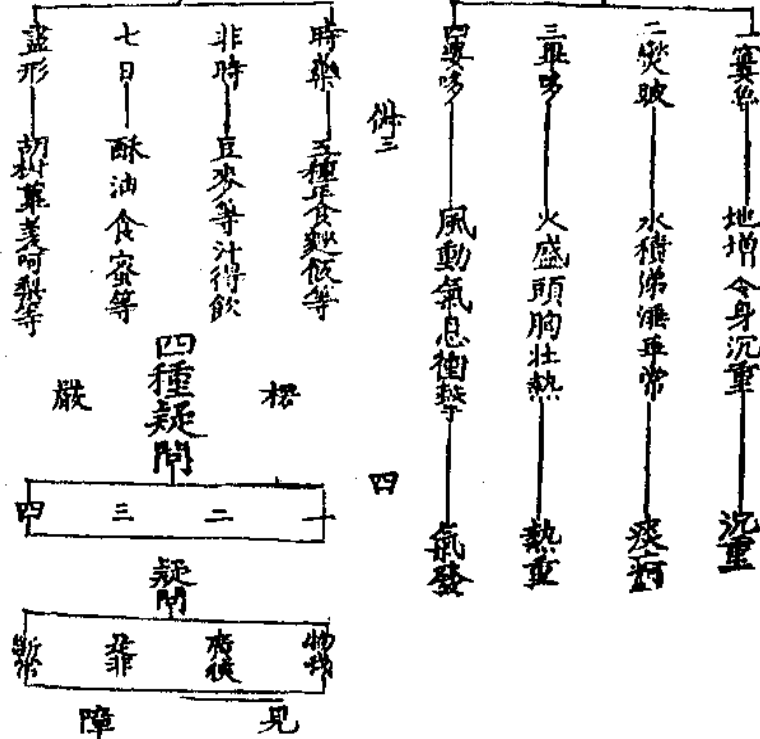 一窶嚕 地增令身沉重 沉重
二燮跛 水積涕涶乖常
三畢哆 火盛頭胸壯熱 熱重
四婆哆 風動氣息衝擊 氣發
併三
時藥 五種正食麨飯等
非時 豆麥等汁得飲
七日 酥油食蜜等
盡形 胡椒蓽姜呵梨等
四
楞嚴
四種疑問
一 二 三 四
疑問
物我
廣狹
是非
斷常
見障